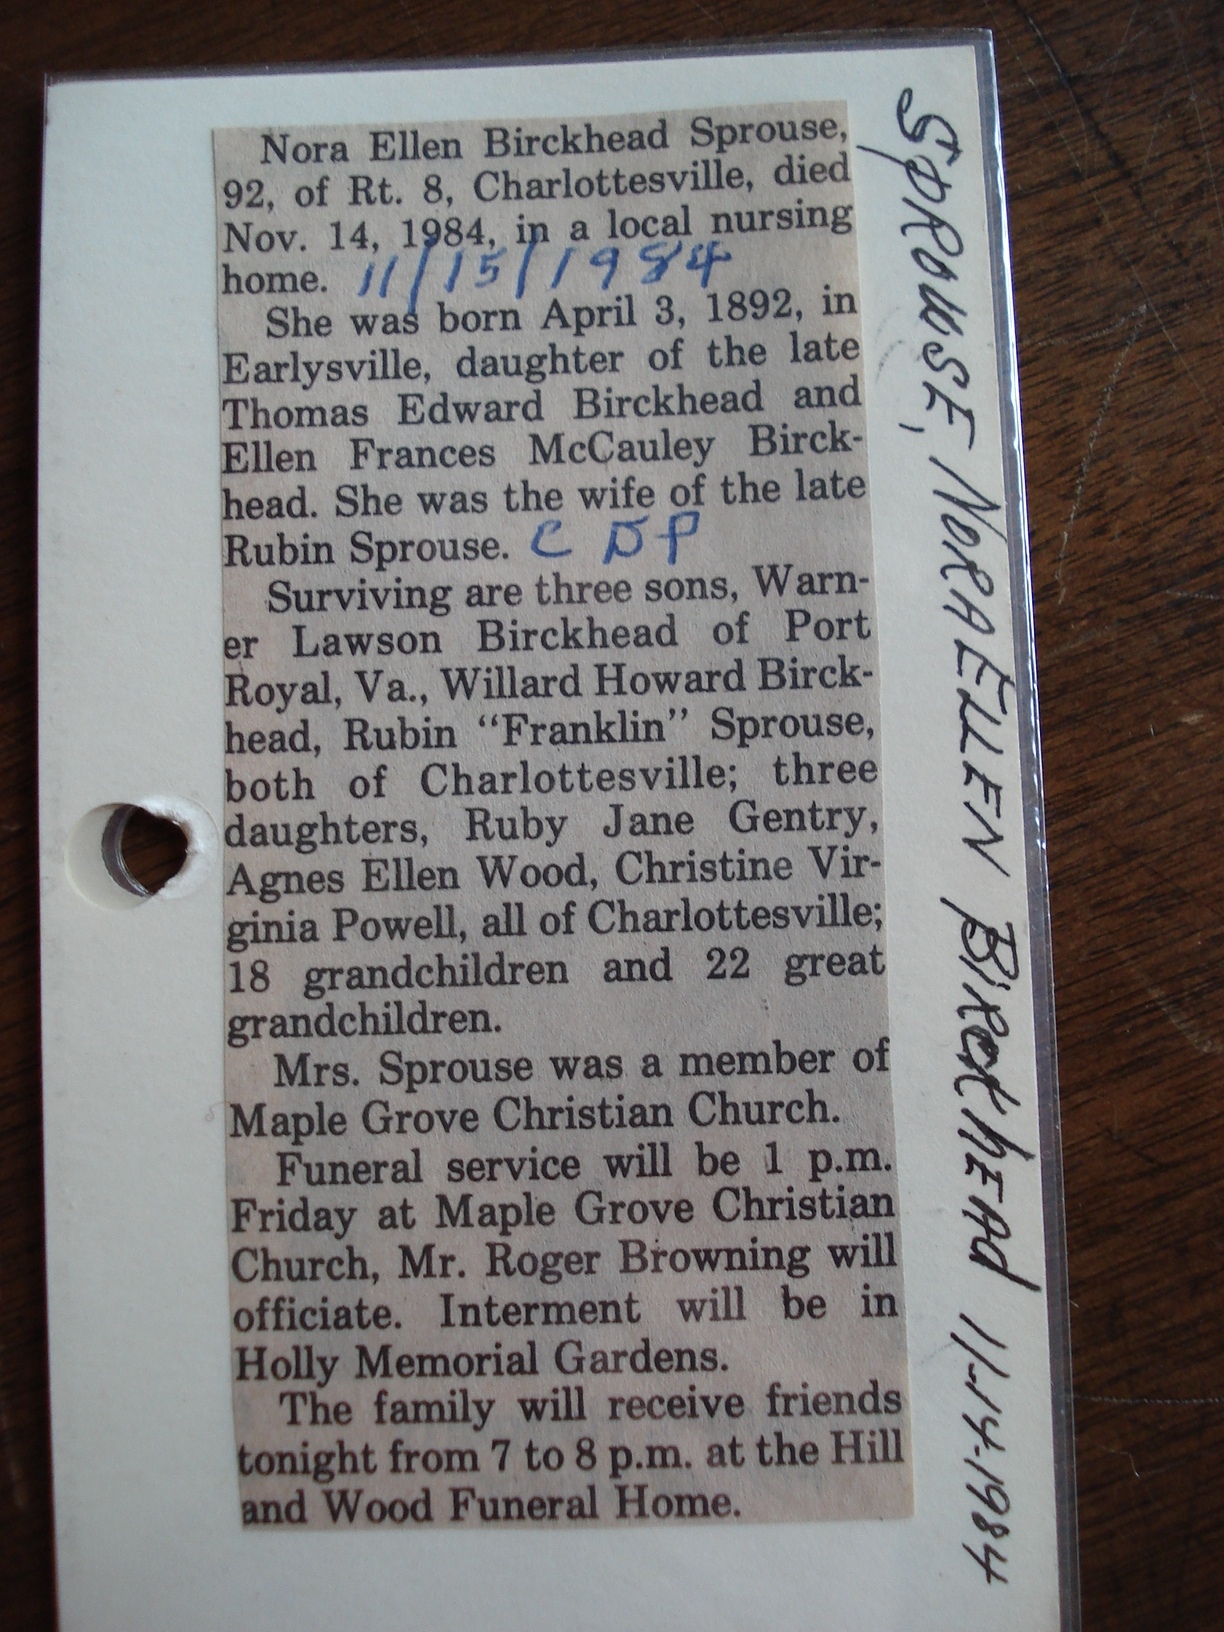 Nora Ellen Birckhead Sprouse,
92, of Rt. 8, Charlottesville, died
Nov. 14, 1984, in a local nursing
home. 11/15/1984
She was born April 3, 1892, in
Earlysville, daughter of the late
Thomas Edward Birckhead and
Ellen Frances McCauley Birck-
head. She was the wife of the late
Rubin Sprouse. C DP
Surviving are three sons, Warn-
er Lawson Birckhead of Port
Royal, Va., Willard Howard Birck-
head, Rubin “Franklin” Sprouse,
both of Charlottesville; three
daughters, Ruby Jane Gentry,
Agnes Ellen Wood, Christine Vir-
ginia Powell, all of Charlottesville;
18 grandchildren and 22 great
grandchildren.
Mrs. Sprouse was a member of
Maple Grove Christian Church.
Funeral service will be 1 p.m.
Friday at Maple Grove Christian
Church, Mr. Roger Browning will
officiate. Interment will be in
Holly Memorial Gardens.
The family will receive friends
tonight from 7 to 8 p.m. at the Hill
and Wood Funeral Home.
SPROUSE, NORA ELLEN BIRCKHEAD 11-14-1984